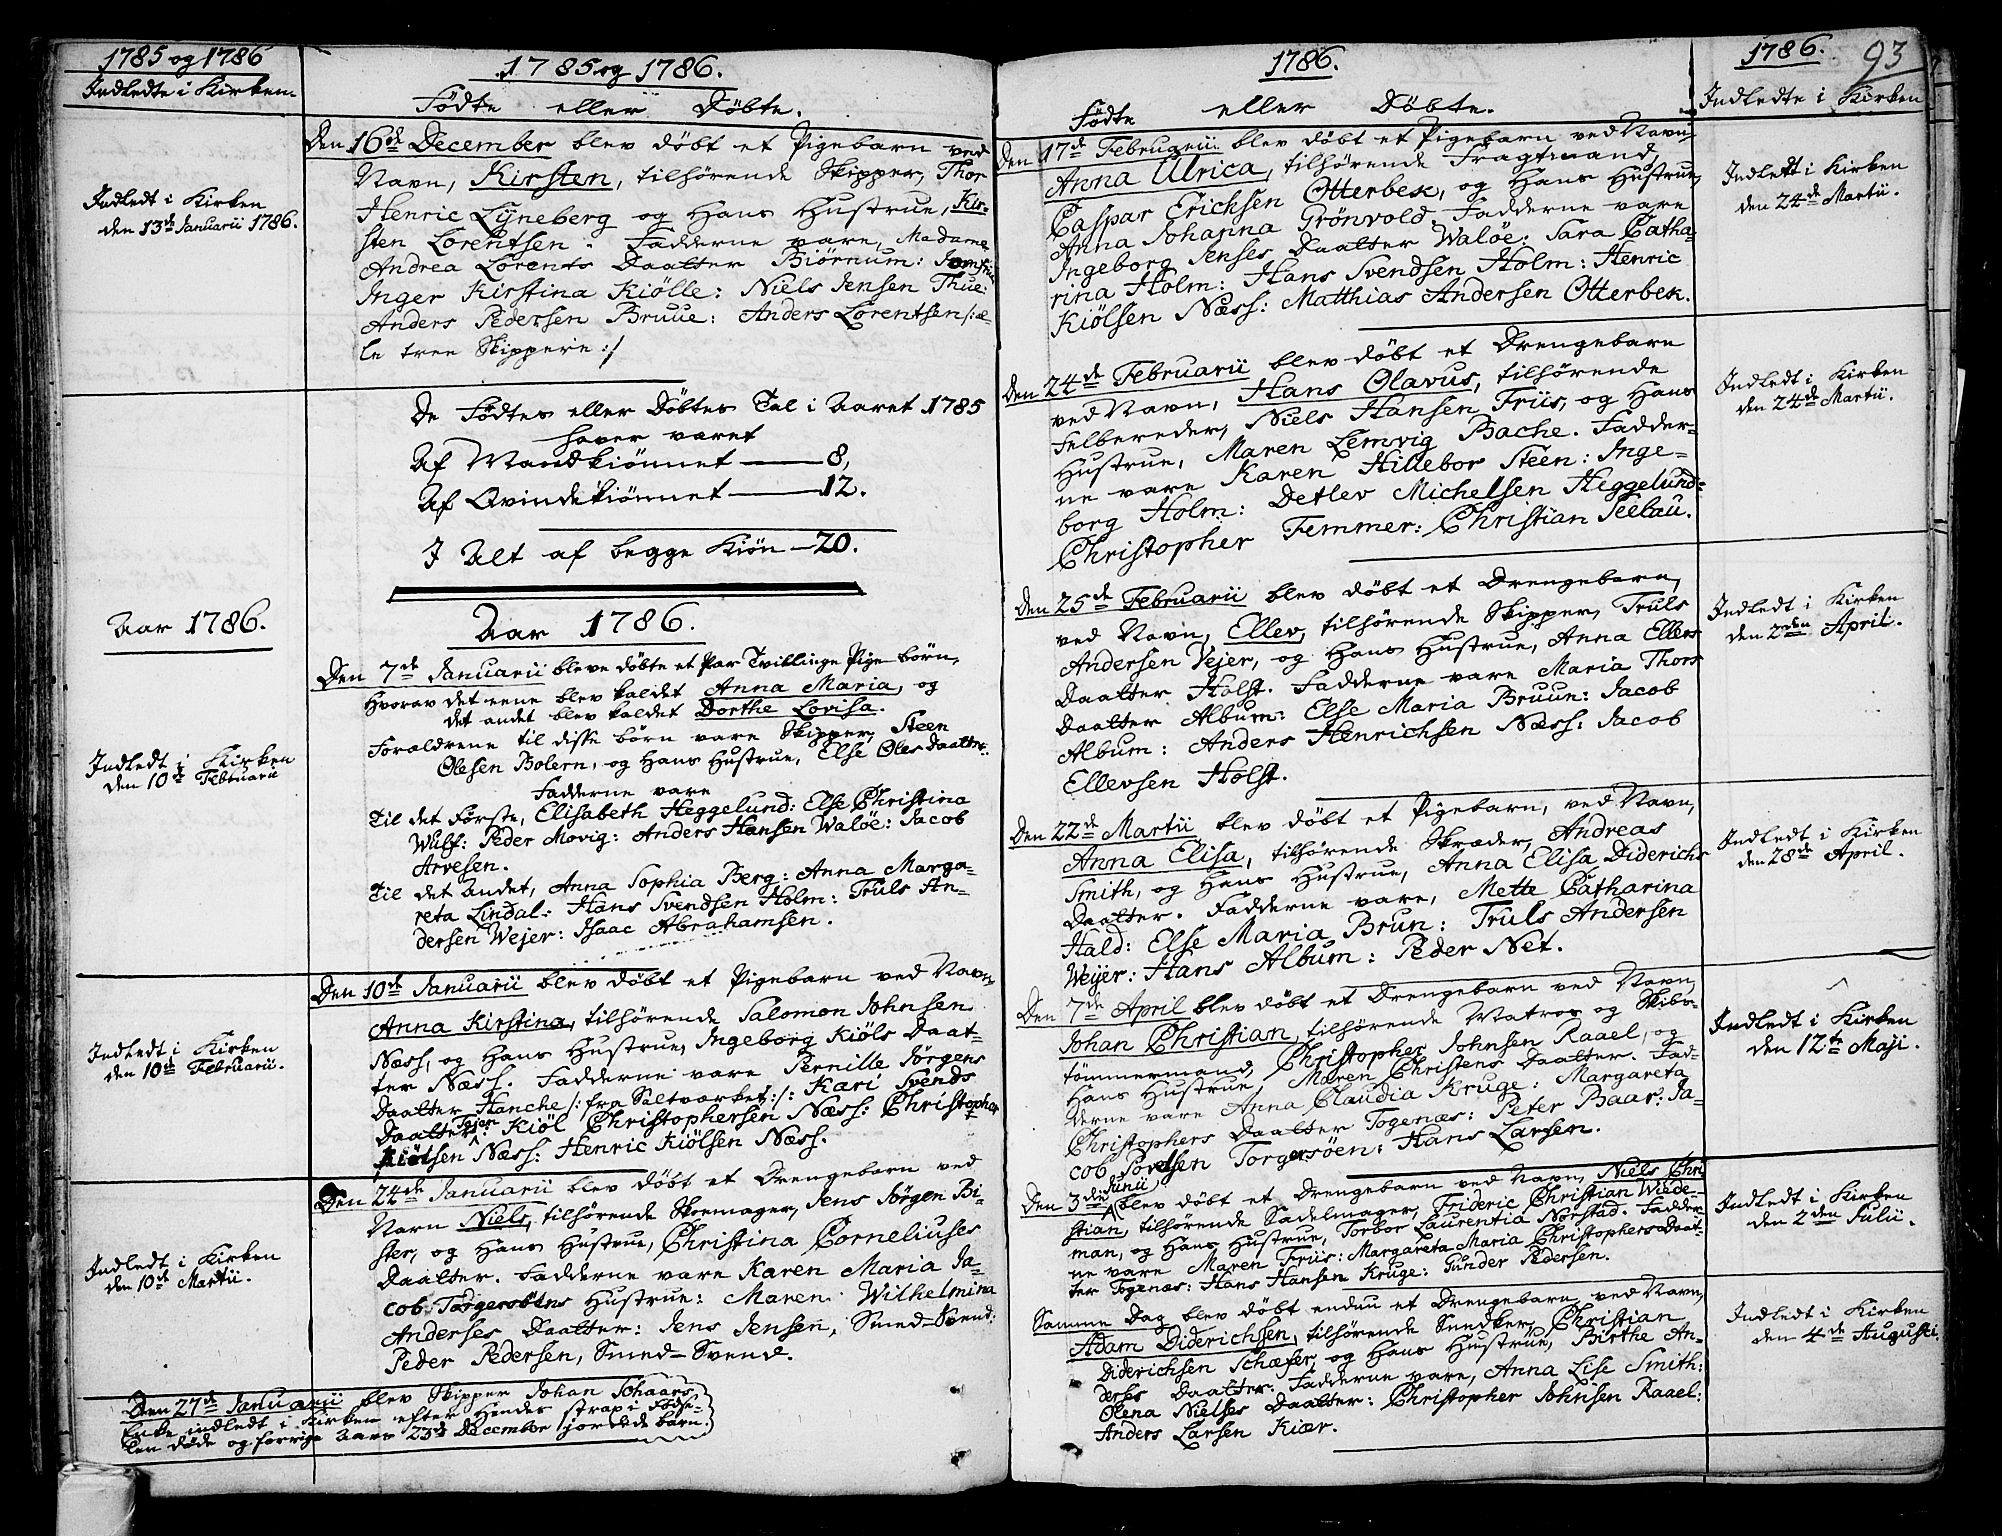 1785 og 1786
Indledte i Kirken
Indledt i Kirken
den 13de Januarii 1786.
Aar 1786.
Indledt i Kirken
den 10de Februarii
Indledt i Kirken
den 10de Februarii.
Indledt i Kirken
den 10de Martii.
1785 og 1786.
Fødte eller Døbte.
Den 16de December blev døbt et Pigebarn ved
Navn, Kirsten, tilhørende Skipper, Thor
Henric Lyneberg og Hans Hustrue, Kir-
sten Lorentsen. Fadderne vare, Madame
Andrea Lorents Daatter Biørnum: Jomfrue
Inger Kirstina Kiølle: Niels Jensen Thue:
Anders Pedersen Bruue: Anders Lorentsen /: al-
le tree Skippere :/
De Fødtes eller Døbtes Tal i Aaret 1785
haver været
Af Mandkiønnet — 8,
Af Qvindekiønnet — 12.
I Alt af begge Kiøn — 20.
Aar 1786.
Den 7de Januarii bleve døbte et Par Tvillinge Pige børn,
Hvorav det eene blev kaldet Anna Maria, og
det andet blev kaldet Dorthe Lovisa.
Forældrene til disse børn vare Skipper, Steen
Olesen Bolern, og Hans Hustrue, Else Oles Daatter.
Fadderne vare
Til det Første, Elisabeth Heggelund: Else Christina
Wulf: Peder Movig: Anders Hansen Waløe: Jacob
Arvesen.
Til det Andet, Anna Sophia Berg: Anna Marga-
reta Lindal: Hans Svendsen Holm: Truls An-
dersen Wejer: Isaac Abrahamsen.
Den 10de Januarii blev døbt et Pigebarn ved Navn,
Anna Kirstina, tilhørende Salomon Johnsen
Næss, og Hans Hustrue, Ingeborg Kiøls Daat-
ter Næss. Fadderne vare Pernille Jørgens
Daatter Hanche /: fra Saltværket :/: Kari Svends
Daatter Tejen: Kiøl Christophersen Næss: Christopher
Kiølsen Næss: Henric Kiølsen Næss.
Den 24de Januarii blev døbt et Drengebarn ved
Navn Niels, tilhørende Skoemager, Jens Jørgen Bi-
ster, og Hans Hustrue, Christina Corneliuses
Daatter. Fadderne vare Karen Maria Ja-
cob Torgersøens Hustrue: Maren Wilhelmina
Anderses Daatter: Jens Jensen, Smed-Svend:
Peder Pedersen, Smed-Svend.
Den 27de Januarii blev Skipper Johan Schaars
Enke indledt i Kirken efter Hendes strax i Fødse-
len døde og forrige Aars 23de December jordede barn.
1786.
Fødte eller Døbte.
Den 17de Februarii blev døbt et Pigebarn ved Navn,
Anna Ulrica, tilhørende Fragtmand,
Caspar Erichsen Otterbek, og Hans Hustrue,
Anna Johanna Grønvold. Fadderne vare
Ingeborg Jenses Daatter Waløe: Sara Catha-
rina Holm: Hans Svendsen Holm: Henric
Kiølsen Næss: Matthias Andersen Otterbek.
Den 24de Februarii blev døbt et Drengebarn
ved Navn, Hans Olavus, tilhørende
Felbereder, Niels Hansen Friis, og Hans
Hustrue, Maren Lemvig Bache. Fadder-
ne vare Karen Hillebor Steen: Inge-
borg Holm: Detlev Michelsen Heggelund:
Christopher Femmer: Christian Seebau.
Den 25de Februarii blev døbt et Drengebarn,
ved Navn, Ellev, tilhørende Skipper, Truls
Andersen Vejer, og Hans Hustrue, Anna Ellevs
Daatter Holst. Fadderne vare Maria Thors
Daatter Album: Else Maria Bruun: Jacob
Album: Anders Henrichsen Næss: Jacob
Ellevsen Holst.
Den 22de Martii blev døbt et Pigebarn, ved Navn,
Anna Elisa, tilhørende Skræder, Andreas
Smith, og Hans Hustrue, Anna Elisa Diderichs
Daatter. Fadderne vare, Mette Catharina
Hald: Else Maria Brun: Truls Andersen
Weyer: Hans Album: Peder Net.
Den 7de April blev døbt et Drengebarn ved Navn,
Johan Christian, tilhørende Matros og Skibs-
tømmermand, Christopher Johnsen Raael, og
Hans Hustrue, Maren Christens Daatter. Fad-
derne vare Anna Claudia Kruge: Margareta
Christophers Daatter Togenæs: Peter Baar: Ja-
cob Torgersøen: Hans Larsen.
Den 3die Junii blev døbt et Drengebarn ved Navn, Niels Chri-
stian, tilhørende Sadelmager, Frideric Christian Wiede-
man, og Hans Hustrue, Torbor Laurentia Norstad. Fadder-
ne vare Maren Friis: Margareta Maria Christophers Daat-
ter Togenæs: Hans Hansen Kruge: Gunder Pedersen.
Samme Dag blev døbt endnu et Drengebarn, ved Navn,
Adam Diderichsen, tilhørende Snedker, Christian
Diderichsen Schæfer, og Hans Hustrue, Birthe An-
derses Daatter. Fadderne vare, Anna Lise Smith:
Olena Nielses Daatter: Christopher Johnsen Raael:
Anders Larsen Kiær.
1786. 93
Indledte i Kirken
Indledt i Kirken
den 24de Martii.
Indledt i Kirken
den 24de Martii.
Indledt i Kirken
den 2den April.
Indledt i Kirken
den 28de April.
Indledt i Kirken
den 12te Maji.
Indledt i Kirken
den 2den Julii.
Indledt i Kirken
den 4de Augusti.